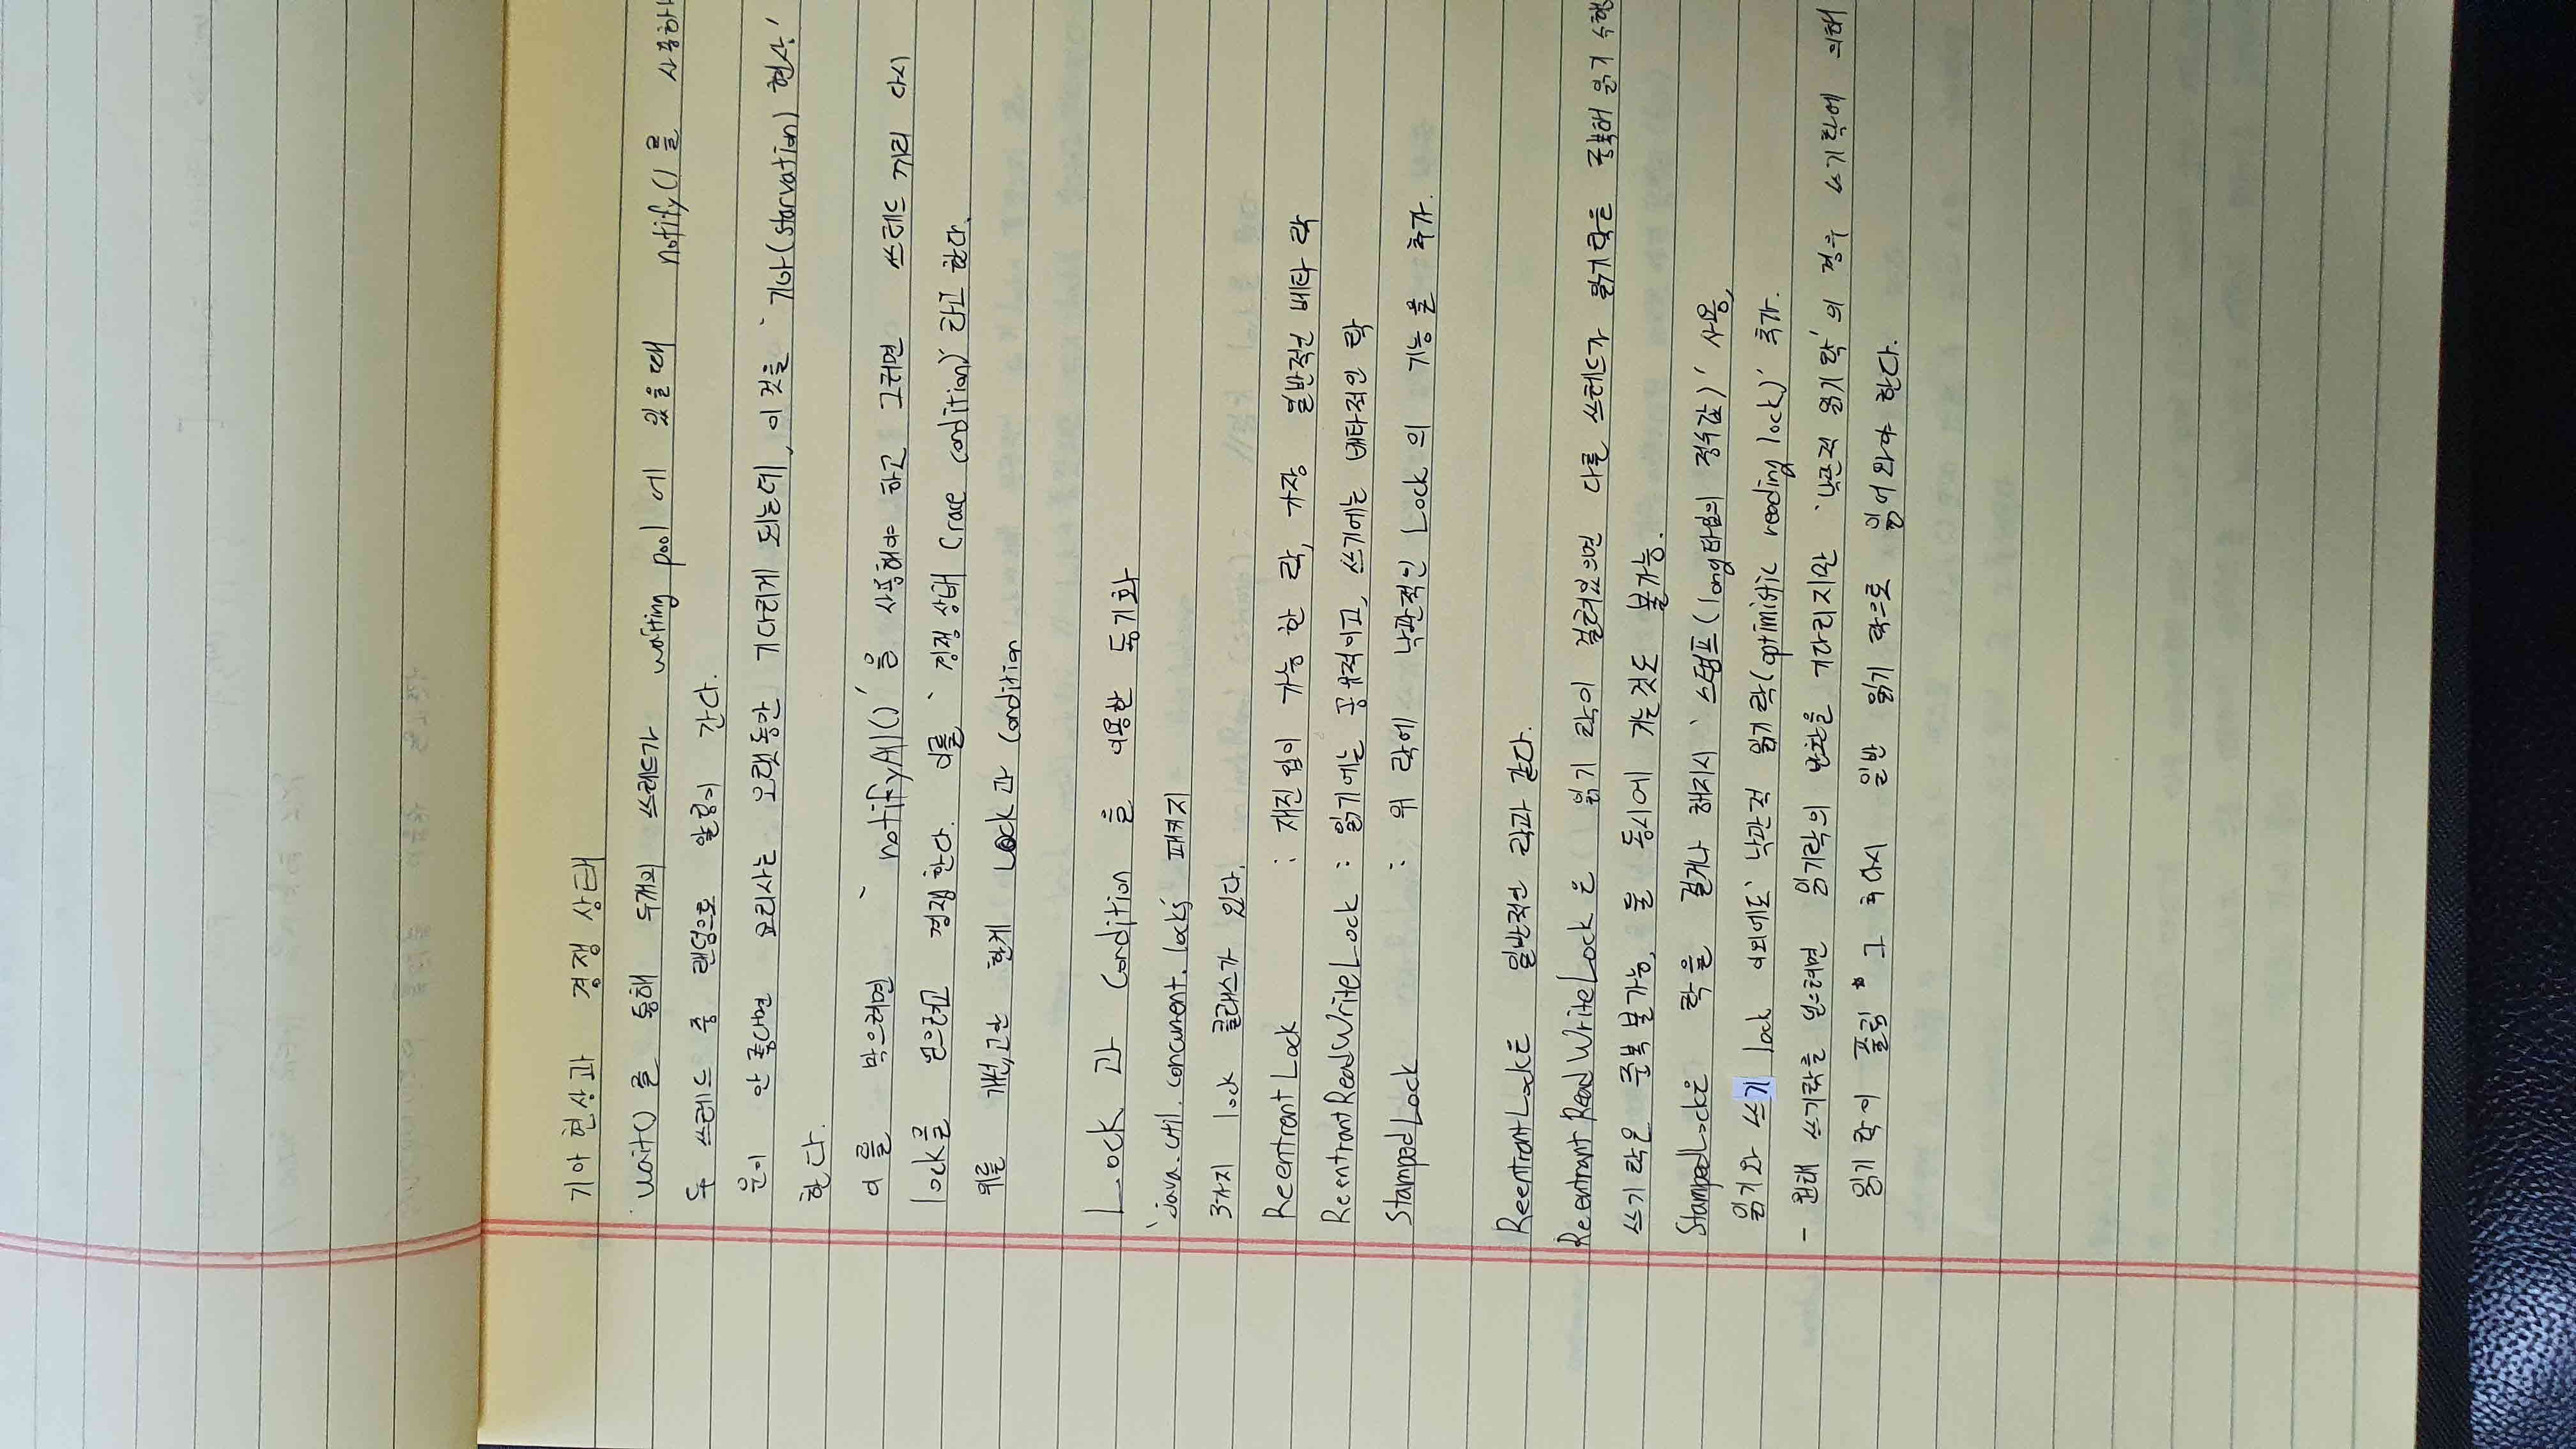 기아 현상과 경쟁 상태
wait()를 통해 두개의 쓰레드가 waiting pool에 있을때 notify()를 사용하
두 쓰레드 중 랜덤으로 알림이 간다.
운이 안 좋다면 요리사는 오랫동안 기다리게 되는데, 이것을 `기아(starvation) 현상'
한다.
이를 막으려면 `notifyAll()'을 사용해야 하고 그러면 쓰레드 끼리 다시
lock를 얻으려고 경쟁한다. 이를 `경쟁상태(race condition)'라고 한다.
위를 개선,고안 한게 Lock과 Condition
Lock과 Condition을 이용한 동기화
`java.util.concurrent.locks' 패키지
3가지 lock 클래스가 있다.
ReentrantLock : 재진입이 가능한 락, 가장 일반적인 베타 락
ReentrantReadWriteLock : 읽기에는 공유적이고, 쓰기에는 배타적인 락
StampedLock : 위 락에 낙관적인 Lock의 기능을 추가.
ReentrantLock은 일반적인 락과 같다.
ReentrantReadWriteLock은 읽기 락이 걸려있으면 다른 쓰레드가 읽기락은 중복해 읽기 수행
쓰기 락은 중복 불가능, 둘 동시에 거는것도 불가능.
StampedLock은 락을 걸거나 해지시 `스탬프(long타입의 정수값)' 사용,
읽기와 쓰기 lock 이외에도 `낙관적 읽기 락(optimistic reading lock)' 추가.
- 원래 쓰기락를 얻으려면 읽기락의 반환을 기다리지만 `낙관적 읽기 락'의 경우 쓰기 락에 의해
읽기 락이 풀림 * 그 후 다시 일반 읽기 락으로 읽어와야 한다.